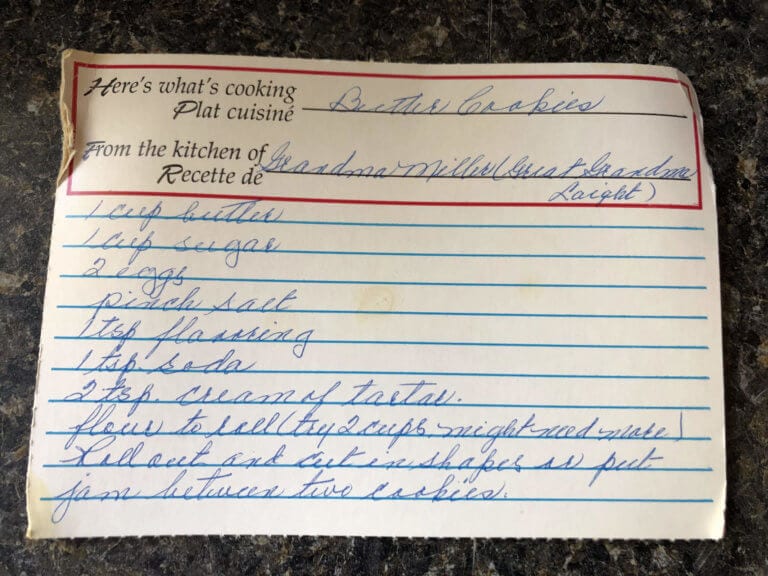 Here's what's cooking
Plat cuisiné Butter Cookies
From the kitchen of
Recette de Grandma Miller (Great Grandma
Laight)
1 cup butter
1 cup sugar
2 eggs
pinch salt
1 tsp flavoring
1 tsp. soda
2 tsp. cream of tartar.
flour to roll (try 2 cups, might need more)
Roll out and cut in shapes or put
jam between two cookies.